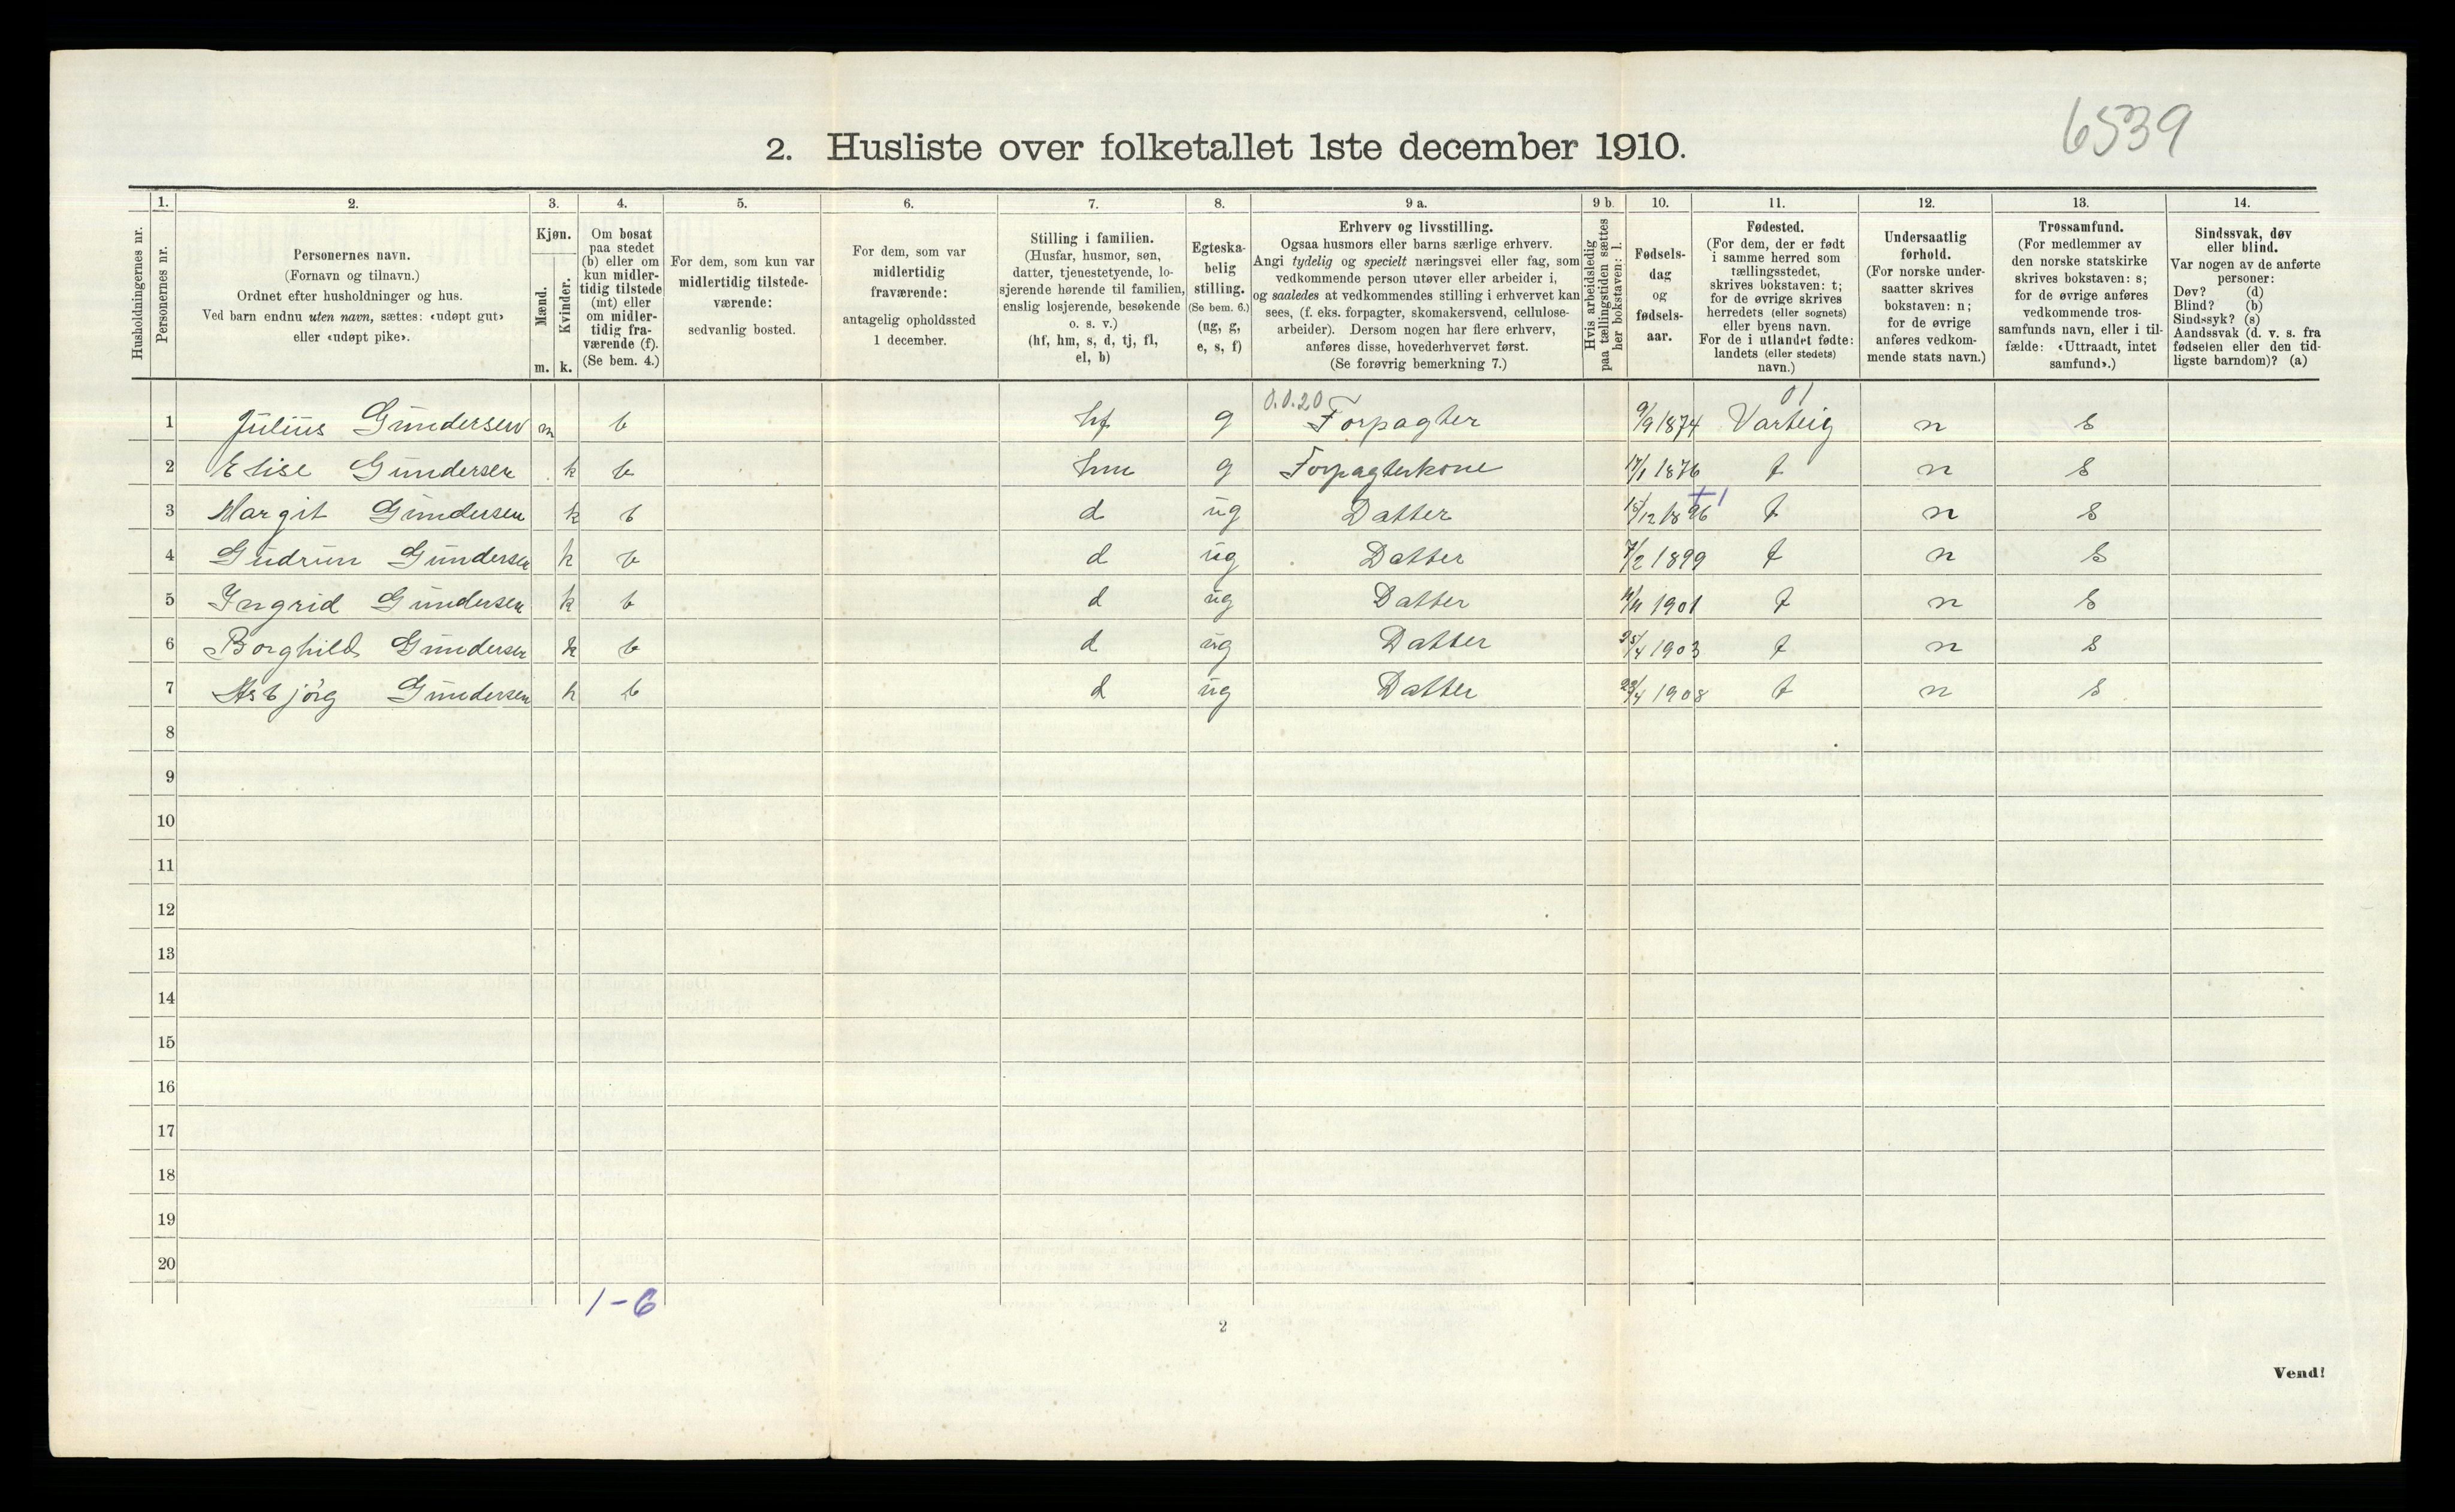 6539
2. Husliste over folketallet 1ste december 1910.
Husholdningernes nr.
1.
Personernes nr.
2.
Personernes navn.
(Fornavn og tilnavn.)
Ordnet efter husholdninger og hus.
Ved barn endnu uten navn, sættes: «udøpt gut»
eller «udøpt pike».
3.
Kjøn.
Mænd.
Kvinder.
m. k.
4.
Om bosat
paa stedet
(b) eller om
kun midler-
tidig tilstede
(mt) eller
om midler-
tidig fra-
værende (f).
(Se bem. 4.)
5.
For dem, som kun var
midlertidig tilstede-
værende:
sedvanlig bosted.
6.
For dem, som var
midlertidig
fraværende:
antagelig opholdssted
1 december.
7.
Stilling i familien.
(Husfar, husmor, søn,
datter, tjenestetyende, lo-
sjerende hørende til familien,
enslig losjerende, besøkende
o. s. v.)
(hf, hm, s, d, tj, fl,
el, b)
8.
Egteska-
belig
stilling.
(Se bem. 6.)
(ug, g,
e, s, f)
9 a.
Erhverv og livsstilling.
Ogsaa husmors eller barns særlige erhverv.
Angi tydelig og specielt næringsvei eller fag, som
vedkommende person utøver eller arbeider i,
og saaledes at vedkommendes stilling i erhvervet kan
sees, (f. eks. forpagter, skomakersvend, cellulose-
arbeider). Dersom nogen har flere erhverv,
anføres disse, hovederhvervet først.
(Se forøvrig bemerkning 7.)
9 b.
Hvis arbeidsledig
paa tællingstiden sættes
her bokstaven: l.
10.
Fødsels-
dag
og
fødsels-
aar.
11.
Fødested.
(For dem, der er født
i samme herred som
tællingsstedet,
skrives bokstaven: t;
for de øvrige skrives
herredets (eller sognets)
eller byens navn.
For de i utlandet fødte:
landets (eller stedets)
navn.)
12.
Undersaatlig
forhold.
(For norske under-
saatter skrives
bokstaven: n;
for de øvrige
anføres vedkom-
mende stats navn.)
13.
Trossamfund.
(For medlemmer av
den norske statskirke
skrives bokstaven: s;
for de øvrige anføres
vedkommende tros-
samfunds navn, eller i til-
fælde: «Uttraadt, intet
samfund».)
14.
Sindssvak, døv
eller blind.
Var nogen av de anførte
personer:
Døv? (d)
Blind? (b)
Sindssyk? (s)
Aandssvak (d. v. s. fra
fødselen eller den tid-
ligste barndom)? (a)
0.0.20 01
1 Julius Gundersen m b hf g Forpagter 9/9 1874 Varteig n s
2 Elise Gundersen k b hm g Forpagterkone 17/1 1876 t n s
3 Margit Gundersen k b d ug Datter 15/12 1896 t n s
4 Gudrun Gundersen k b d ug Datter 7/2 1899 t n s
5 Ingrid Gundersen k b d ug Datter 1901 t n s
6 Borghild Gundersen k b d ug Datter 25/4 1903 t n s
7 Asbjörg Gundersen k b d ug Datter 23/4 1908 t n s
8
9
10
11
12
13
14
15
16
17
18
19
20
1-6
2
Vend!